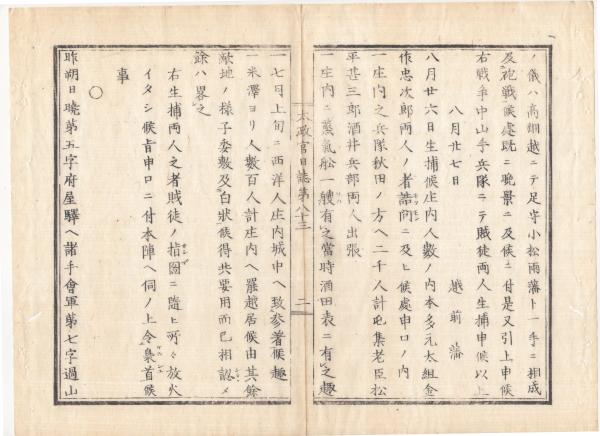 ノ儀ハ高畑越ニテ足守小松両藩ト一手ニ相成
及砲戦候處既ニ晩景ニ及候ニ付是又引上申候
右戦争中山手兵隊ニテ賊徒両人生捕申候以上
八月廿七日
越前藩
八月廿六日生捕候庄内人数ノ内本多元太組金
作忠次郎両人ノ者詰問ニ及ヒ候處申口ノ内
一庄内之兵隊秋田ノ方ヘ二千人計屯集老臣松
平甚三郎酒井兵部両人出張
一庄内ニ蒸氣船一艘有之當時酒田表ニ有之趣
太政官日誌第八十三
二
一七月上旬ニ西洋人庄内城中ヘ致参着候趣
一米澤ヨリ人数百人計庄内ヘ罷越居候由其餘
敵地ノ様子委敷及白状候得共要用而已相認メ
餘ハ畧之
右生捕両人之者賊徒ノ指圖ニ隨ヒ所々放火
イタシ候旨申口ニ付本陣ヘ伺ノ上令梟首候
事
○
昨朔日暁第五字府屋驛ヘ諸手會軍第七字過山